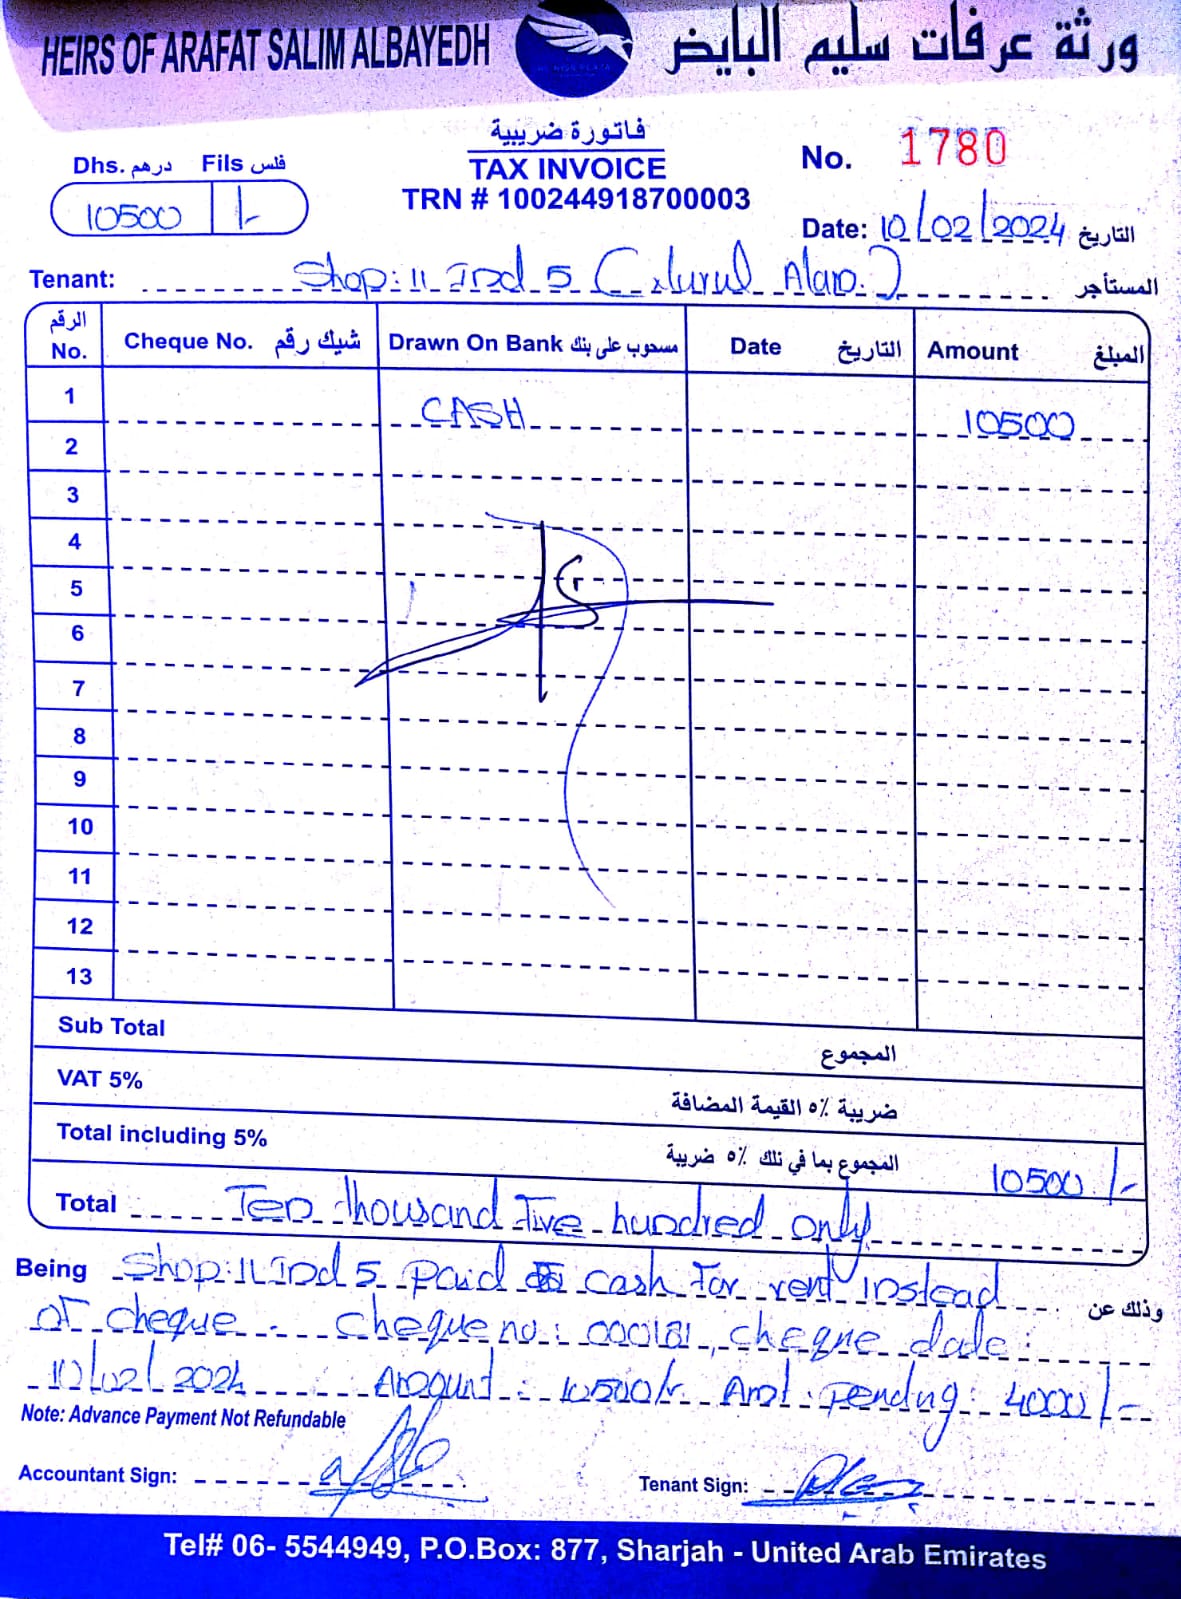 HEIRS OF ARAFAT SALIM ALBAYEDH ورثة عرفات سليم البايض
فاتورة ضريبية
TAX INVOICE
TRN # 100244918700003
Dhs. درهم Fils فلس
10500 /-
No. 1780
Date: 10/02/2024 التاريخ
Tenant: Shop: 11 Ind 5 (Nurul Alam.) المستأجر
الرقم No. Cheque No. شيك رقم Drawn On Bank مسحوب على بنك Date التاريخ Amount المبلغ
1 CASH 10500
2
3
4
5
6
7
8
9
10
11
12
13
Sub Total المجموع
VAT 5% ضريبة ٥٪ القيمة المضافة
Total including 5% المجموع بما في ذلك ٥٪ ضريبة 10500/-
Total Ten thousand Five hundred only
Being Shop: 11 Ind 5 paid cash For rent instead وذلك عن
of cheque. Cheque no: 000181, cheque date:
10/02/2024 Amount: 10500/- Amt. pending: 4000/-
Note: Advance Payment Not Refundable
Accountant Sign: Tenant Sign:
Tel# 06- 5544949, P.O.Box: 877, Sharjah - United Arab Emirates